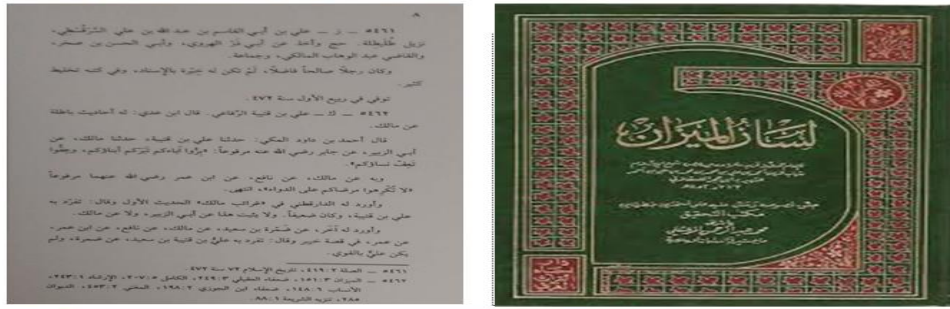 ٨
٥٤٦١ – ز – علي بن أبي القاسم بن عبد الله بن علي السَّرَقُسْطي،
نزيل طُلَيطِلة. حج وأخذ عن أبي ذَرّ الهروي، وأبي الحسن بن صخر،
والقاضي عبد الوهاب المالكي، وجماعة.
وكان رجلاً صالحاً فاضلاً، لَمْ تكن له خِبْرة بالإسناد، وفي كتبه تخليط
كثير.
توفي في ربيع الأول سنة ٤٧٢.
٥٤٦٢ – ك – علي بن قتيبة الرِّفاعي. قال ابن عدي: له أحاديث باطلة
عن مالك.
قال أحمد بن داود المكي: حدثنا علي بن قتيبة، حدثنا مالك، عن
أبي الزبير، عن جابر رضي الله عنه مرفوعاً: «بِرُّوا آباءكم تَبَرَّكم أبناؤكم، وعِفُّوا
تَعِفَّ نساؤكم».
وبه عن مالك، عن نافع، عن ابن عمر رضي الله عنهما مرفوعاً
«لا تُكْرِهوا مرضاكم على الدواء»، انتهى.
وأورد له الدارقطني في «غرائب مالك» الحديث الأول وقال: تفرَّد به
علي بن قتيبة، وكان ضعيفاً. ولا يثبت هذا عن أبي الزبير، ولا عن مالك.
وأورد له آخر، عن ضَمْرة بن سعيد، عن مالك، عن نافع، عن ابن عمر،
عن عمر، في قصة خيبر وقال: تفرد به عليُّ بن قتيبة بن سعيد، عن ضمرة، ولم
يكن عليٌّ بالقوي.
٥٤٦١ – الصلة ٤١٩:٢، تاريخ الإسلام ٧٢ سنة ٤٧٢.
٥٤٦٢ – الميزان ١٥١:٣، ضعفاء العقيلي ٢٤٩:٣، الكامل ٢٠٧:٥، الإرشاد ٢٤٣:١،
الأنساب ١٤٨:٦، ضعفاء ابن الجوزي ١٩٨:٢، المغني ٤٥٣:٢، الديوان
٢٨٥، تنزيه الشريعة ٨٨:١.
لسان الميزان
مكتب التحقيق
محمد عبد الرحمن المرعشلي